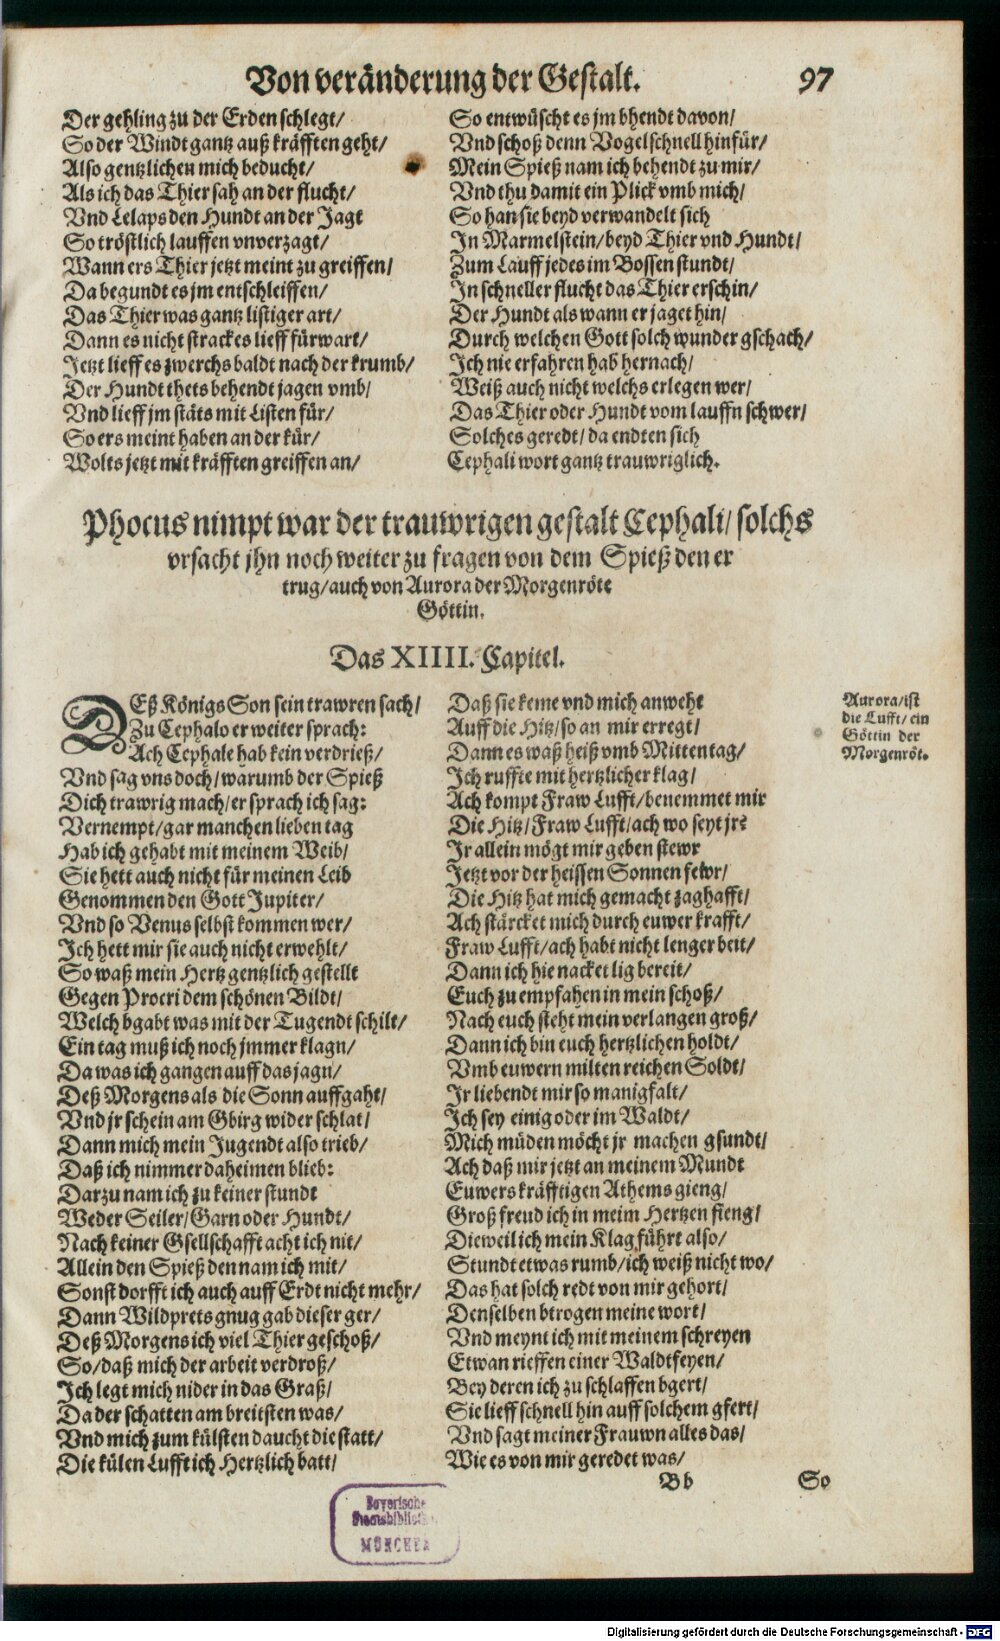 Von veränderung der Gestalt. 97
Der gehling zu der Erden schlegt/
So der Windt gantz auß kräfften geht/
Also gentzlichen mich beducht/
Als ich das Thier sah an der flucht/
Vnd Lelaps den Hundt an der Jagt
So tröstlich lauffen vnverzagt/
Wann ers Thier jetzt meint zu greiffen/
Da begundt es jm entschleiffen/
Das Thier was gantz listiger art/
Dann es nicht strackes lieff fürwart/
Jetzt lieff es zwerchs baldt nach der krumb/
Der Hundt thets behendt jagen vmb/
Vnd lieff jm stäts mit Listen für/
So ers meint haben an der kür/
Wolts jetzt mit kräfften greiffen an/
So entwüscht es jm bhendt davon/
Vnd schoß denn Vogelschnell hinfür/
Mein Spieß nam ich behendt zu mir/
Vnd thu damit ein Plick vmb mich/
So han sie beyd verwandelt sich
In Marmelstein/beyd Thier vnd Hundt/
Zum Lauff jedes im Bossen stundt/
In schneller flucht das Thier erschin/
Der Hundt als wann er jaget hin/
Durch welchen Gott solch wunder gschach/
Ich nie erfahren hab hernach/
Weiß auch nicht welchs erlegen wer/
Das Thier oder Hundt vom lauffn schwer/
Solches geredt/da endten sich
Cephali wort gantz trauwriglich.
Phocus nimpt war der trauwrigen gestalt Cephali/solchs
vrsacht jhn noch weiter zu fragen von dem Spieß den er
trug/auch von Aurora der Morgenröte
Göttin.
Das XIIII. Capitel.
DEß Königs Son sein trawren sach/
Zu Cephalo er weiter sprach:
Ach Cephale hab kein verdrieß/
Vnd sag vns doch/warumb der Spieß
Dich trawrig mach/er sprach ich sag:
Vernempt/gar manchen lieben tag
Hab ich gehabt mit meinem Weib/
Sie hett auch nicht für meinen Leib
Genommen den Gott Jupiter/
Vnd so Venus selbst kommen wer/
Ich hett mir sie auch nicht erwehlt/
So waß mein Hertz gentzlich gestellt
Gegen Procri dem schönen Bildt/
Welch bgabt was mit der Tugendt schilt/
Ein tag muß ich noch jmmer klagn/
Da was ich gangen auff das jagn/
Deß Morgens als die Sonn auffgaht/
Vnd jr schein am Gbirg wider schlat/
Dann mich mein Jugendt also trieb/
Daß ich nimmer daheimen blieb:
Darzu nam ich zu keiner stundt
Weder Seiler/Garn oder Hundt/
Nach keiner Gsellschafft acht ich nit/
Allein den Spieß den nam ich mit/
Sonst dorfft ich auch auff Erdt nicht mehr/
Dann Wildprets gnug gab dieser ger/
Deß Morgens ich viel Thier geschoß/
So/daß mich der arbeit verdroß/
Ich legt mich nider in das Graß/
Da der schatten am breitsten was/
Vnd mich zum külsten daucht die statt/
Die külen Lufft ich Hertzlich batt/
Daß sie keme vnd mich anweht
Auff die Hitz/so an mir erregt/
Dann es waß heiß vmb Mittentag/
Ich ruffte mit hertzlicher klag/
Ach kompt Fraw Lufft/benemmet mir
Die Hitz/Fraw Lufft/ach wo seyt jr?
Ir allein mögt mir geben stewr
Jetzt vor der heissen Sonnen fewr/
Die Hitz hat mich gemacht zaghafft/
Ach stärcket mich durch euwer krafft/
Fraw Lufft/ach habt nicht lenger beit/
Dann ich hie nacket lig bereit/
Euch zu empfahen in mein schoß/
Nach euch steht mein verlangen groß/
Dann ich bin euch hertzlichen holdt/
Vmb euwern milten reichen Soldt/
Ir liebendt mir so manigfalt/
Ich sey einig oder im Waldt/
Mich müden möcht jr machen gsundt/
Ach daß mir jetzt an meinem Mundt
Euwers kräfftigen Athems gieng/
Groß freud ich in meim Hertzen fieng/
Dieweil ich mein Klag führt also/
Stundt etwas rumb/ich weiß nicht wo/
Das hat solch redt von mir gehort/
Denselben btrogen meine wort/
Vnd meynt ich mit meinem schreyen
Etwan rieffen einer Waldtfeyen/
Bey deren ich zu schlaffen bgert/
Sie lieff schnell hin auff solchem gfert/
Vnd sagt meiner Frauwn alles das/
Wie es von mir geredet was/
Aurora/ist
die Lufft/ein
Göttin der
Morgenröt.
Bb So
Bayerische
Staatsbibliothek
MÜNCHEN
Digitalisierung gefördert durch die Deutsche Forschungsgemeinschaft - DFG